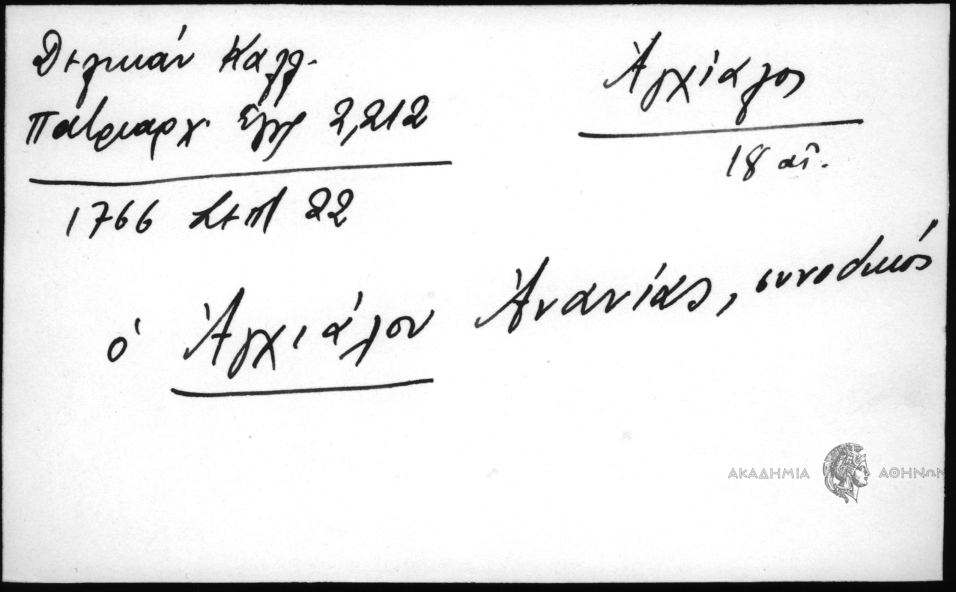 Δελικάν Καλλ.
Πατριαρχ. Εγγρ 2,212
Ἀγχίαλος
18 αἰ.
1766 Σεπ 22
ὁ Ἀγχιάλου Ἀνανίας, συνοδικός
ΑΚΑΔΗΜΙΑ ΑΘΗΝΩΝ